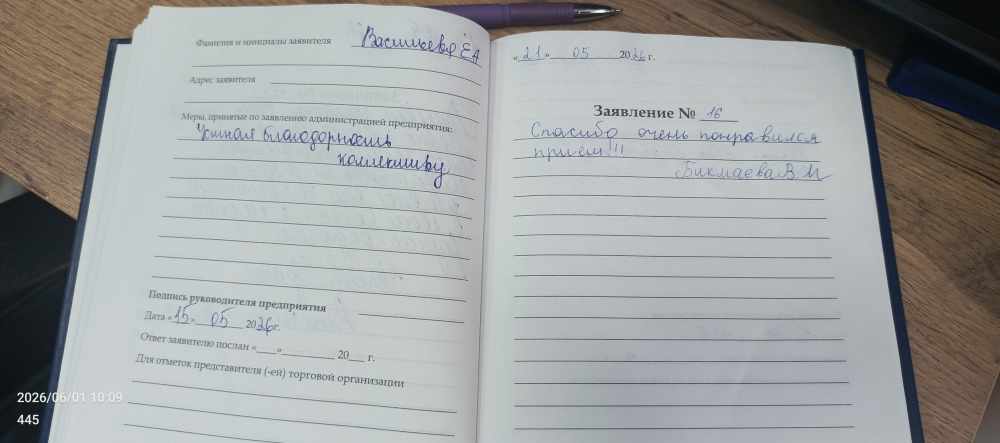 Фамилия и инициалы заявителя Васильева Е А
Адрес заявителя
Меры, принятые по заявлению администрацией предприятия:
Устная благодарность
коллективу
Подпись руководителя предприятия
Дата «15» 05 2026г.
Ответ заявителю послан «___»________ 20___ г.
Для отметок представителя (-ей) торговой организации
«21» 05 2026 г.
Заявление № 16
Спасибо очень понравился
приём!!!
Бикмаева В. М
2026/06/01 10:09
445